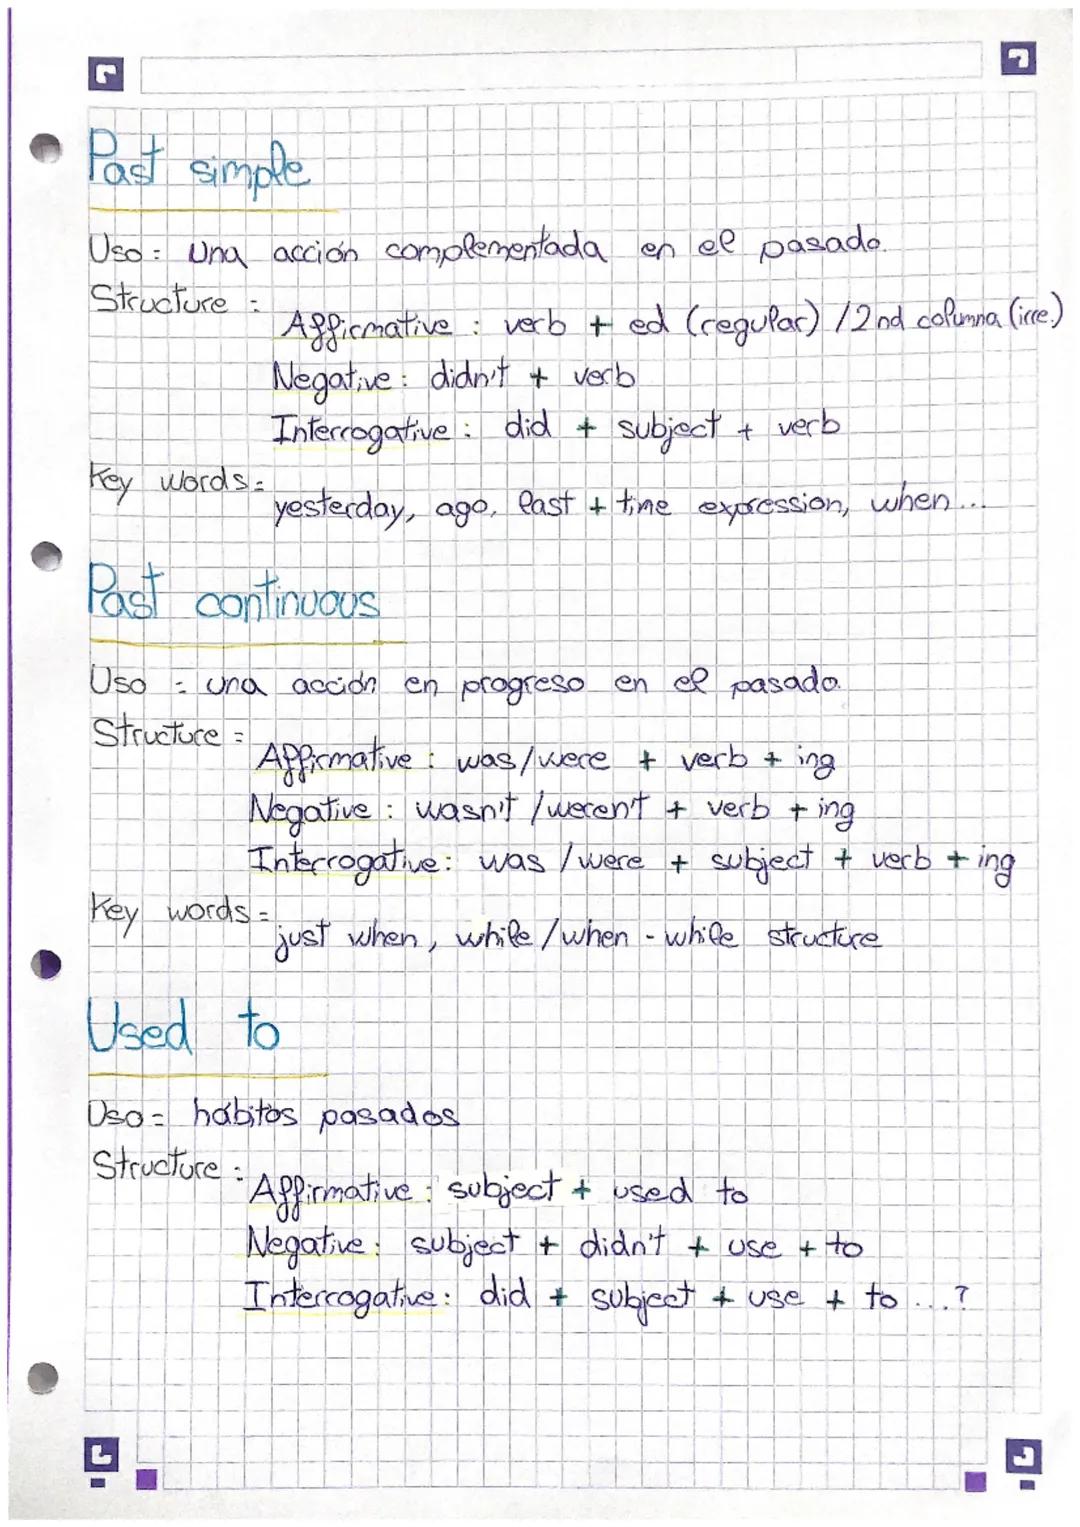 Past simple
Uso: Una acción complementada en el pasado.
Structure:
Affirmative: verb + ed (regular) / 2nd columna (irre.)
Negative: didn't + verb
Interrogative: did + subject + verb
Key words=
yesterday, ago, last + time expression, when...
Past continuous
Uso = una acción en progreso en el pasado.
Structure =
Affirmative: was/were + verb + ing
Negative: wasn't / weren't + verb + ing
Interrogative: was / were + subject + verb + ing
Key words=
just when, while / when - while structure
Used to
Uso = hábitos pasados
Structure:
Affirmative: subject + used to
Negative: subject + didn't + use + to
Interrogative: did + subject + use + to ...?